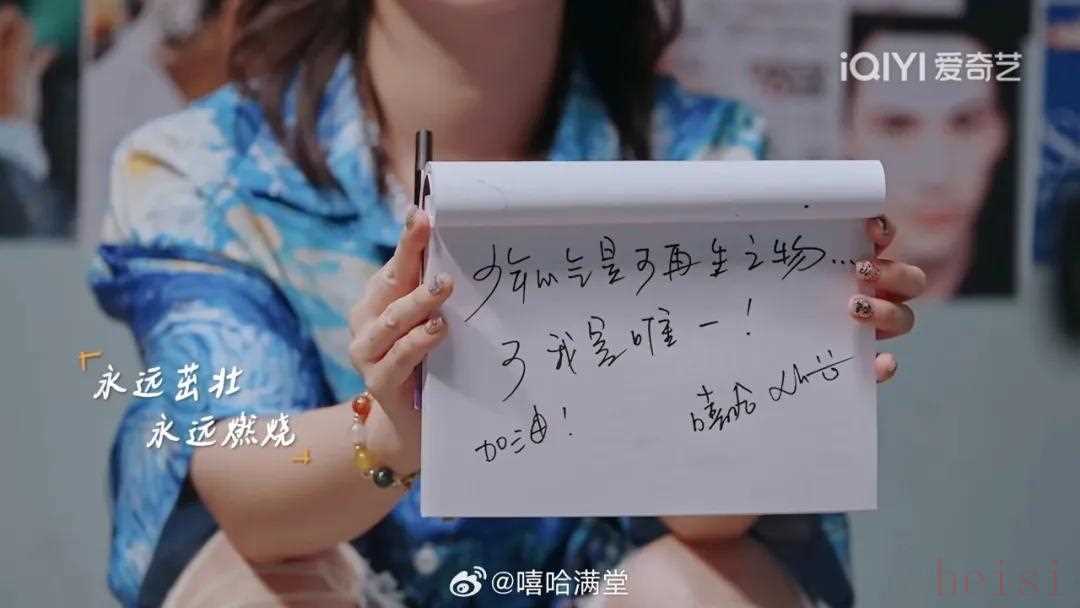 iQIYI 爱奇艺
少年心气是可再生之物...
可我是唯一!
加油!
嘻哈
永远茁壮
永远燃烧
@嘻哈满堂
heisi